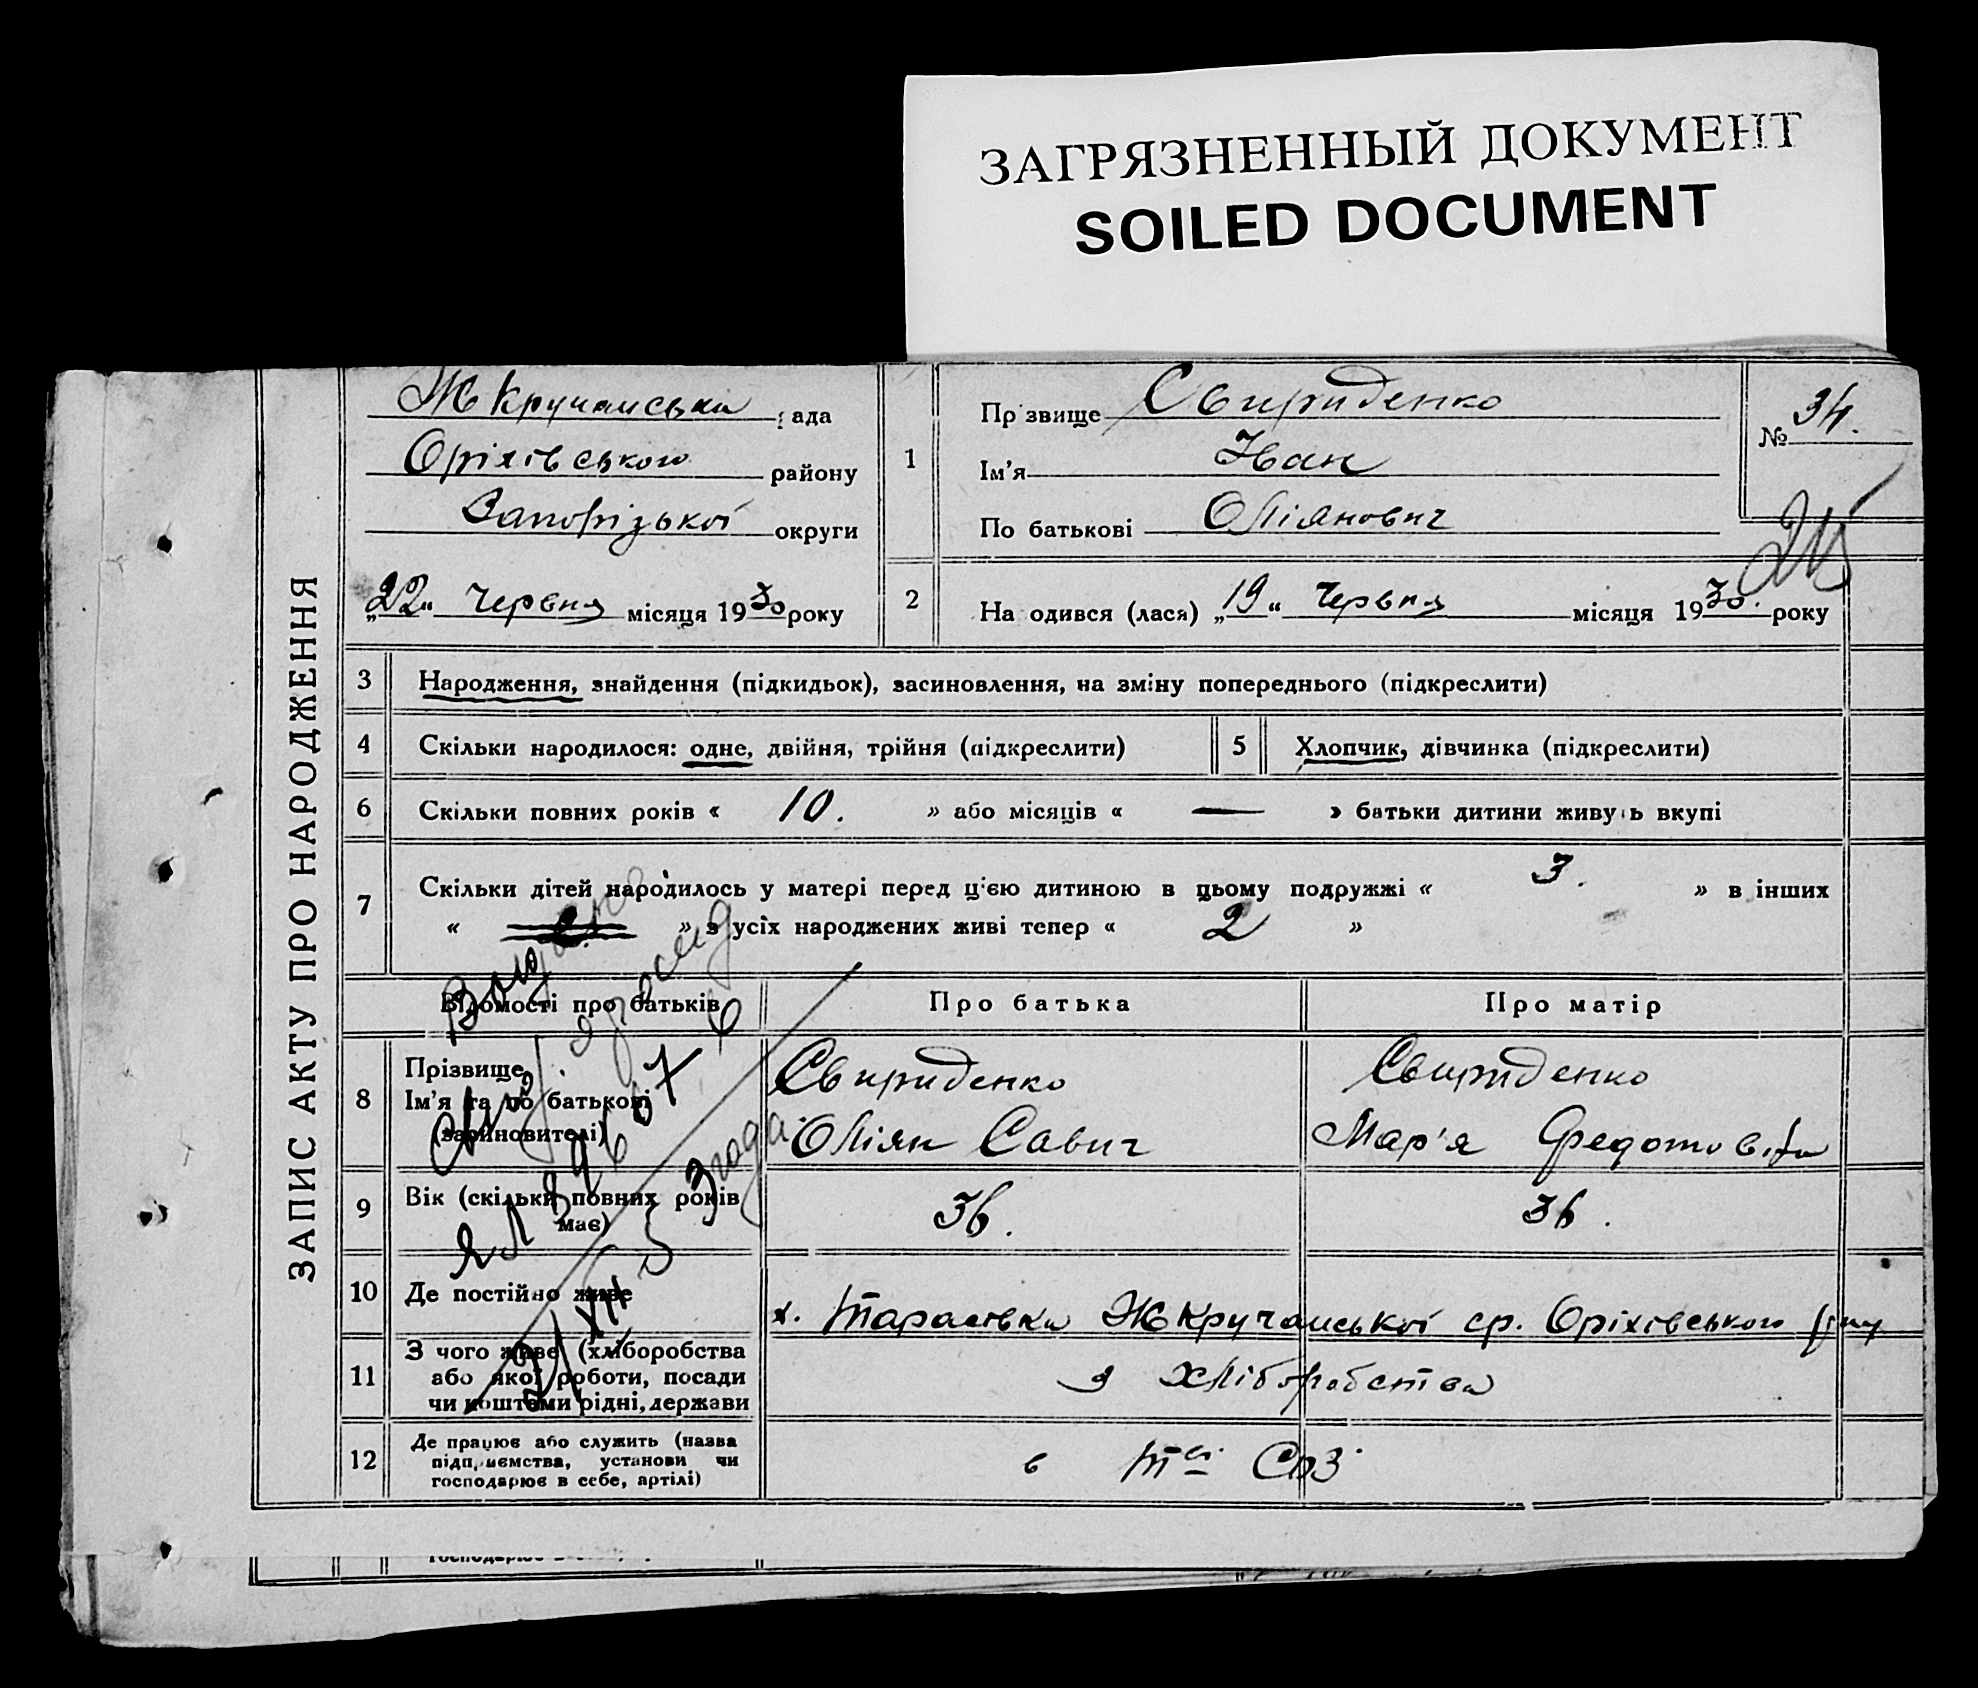 ЗАГРЯЗНЕННЫЙ ДОКУМЕНТ
SOILED DOCUMENT
ЗАПИС АКТУ ПРО НАРОДЖЕННЯ
рада
Оріхівського району
Запорізької округи
„22“ Червня місяця 1930 року
1
Прізвище Свириденко
Ім'я Іван
По батькові Оліянович
№ 34.
2
Народився (лася) „19“ Червня місяця 1930. року
3 Народження, знайдення (підкидьок), засиновлення, на зміну попереднього (підкреслити)
4 Скільки народилося: одне, двійня, трійня (підкреслити)
5 Хлопчик, дівчинка (підкреслити)
6 Скільки повних років « 10. » або місяців « — » батьки дитини живуть вкупі
7 Скільки дітей народилось у матері перед цією дитиною в цьому подружжі « 3. » в інших
« » з усіх народжених живі тепер « 2 »
Відомості про батьків
Про батька
Про матір
8 Прізвище
Ім'я та по батькові
Свириденко
Оліян Савич
Свириденко
Мар'я
9 Вік (скільки повних років має)
36.
36.
10 Де постійно живе
х. Тарасівка Оріхівського
11 З чого живе (хліборобства
або якої роботи, посади
чи коштами рідні, держави
з хліборобства
12 Де працює або служить (назва
підприємства, установи чи
господарює в себе, артілі)
в СОЗ
Згода